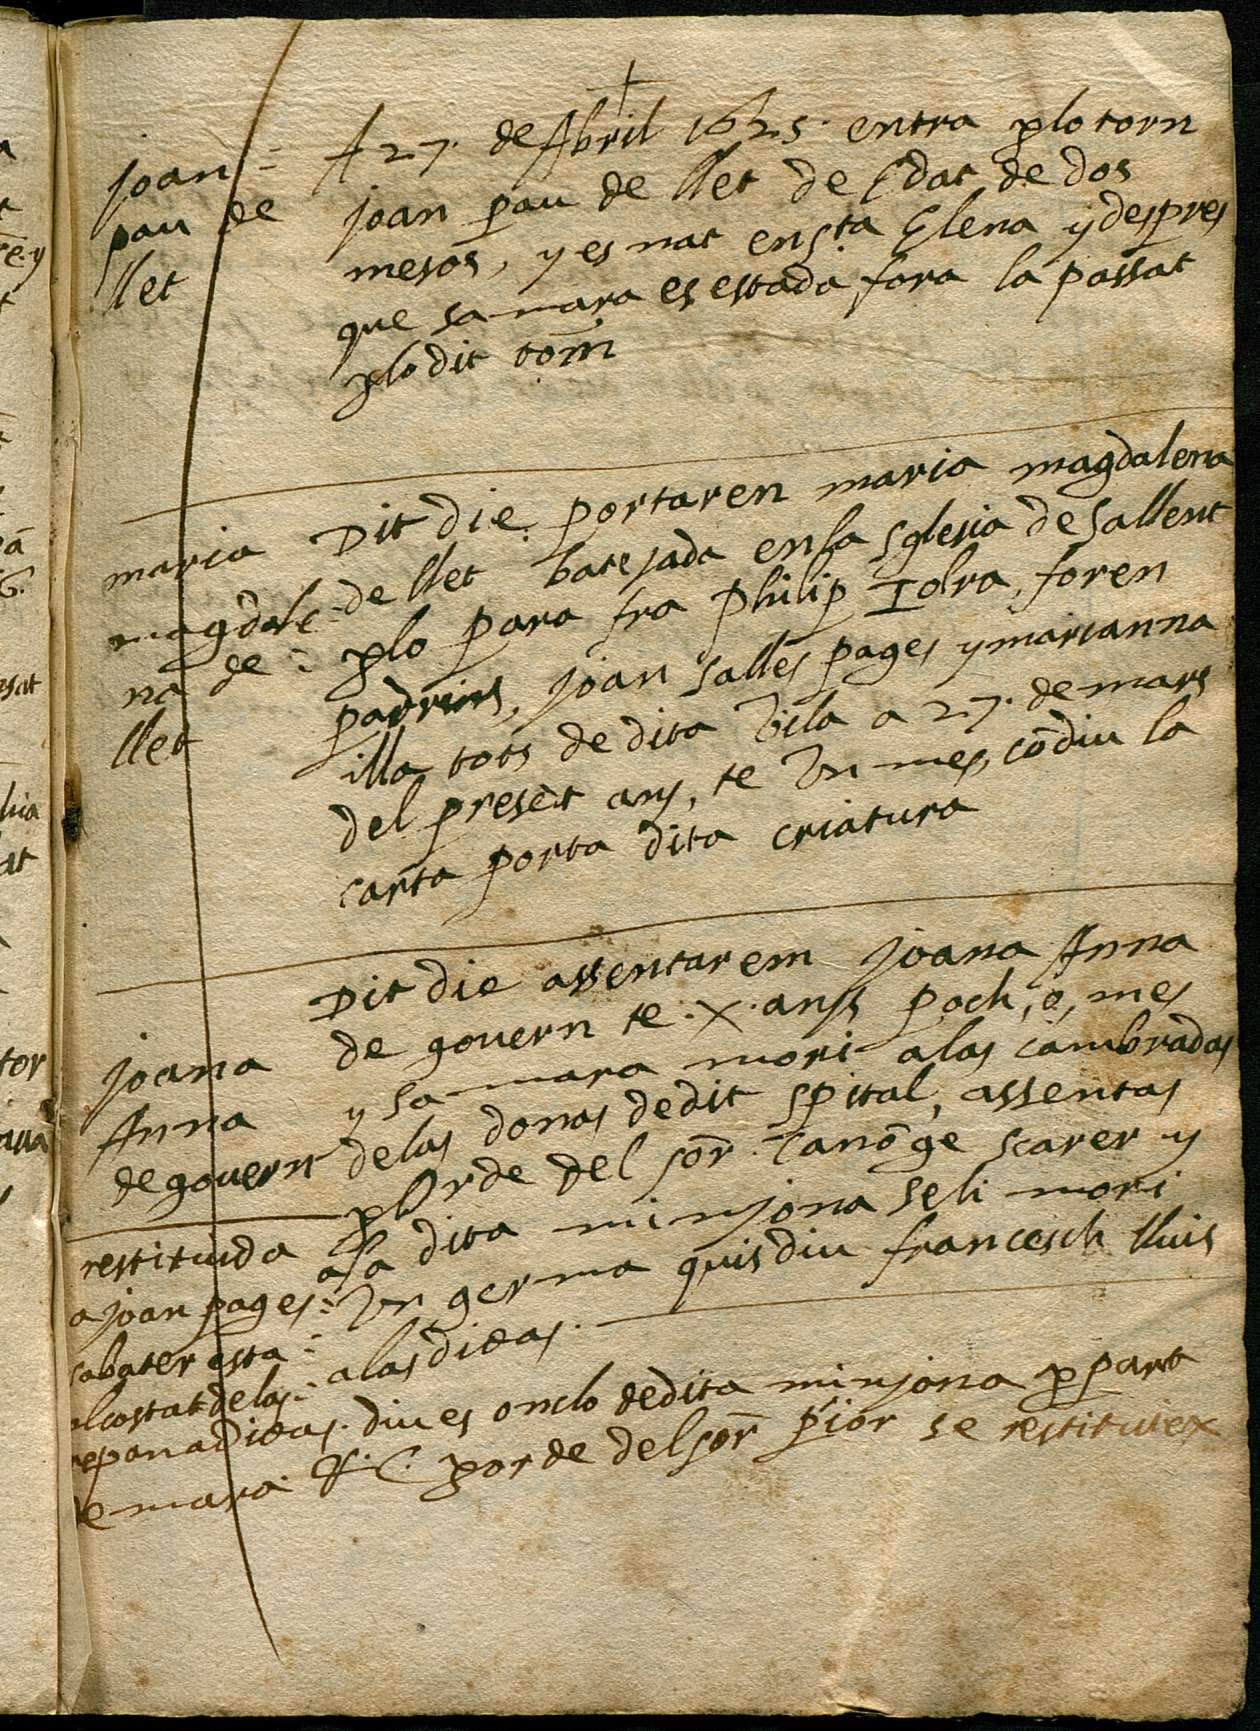 joan =
pau de
llet
A 27. de Abril 1625. entra plo torn
joan pau de llet de Edat de dos
mesos, y es nat en Sta Elena y despres
que sa mara es estada fora la passat
plo dit torn
maria
magdale=
na de =
llet
Dit die portaren maria magdalena
de llet batejada en la sglesia de Sallent
plo para fra Philip Tolra, foren
padrins, joan Salles pages y marianna
illa tots de dita Vila a 27. de mars
del presēt any, te Vn mes, cōdiu la
carta porta dita criatura
joana
Anna
de govern
Dit die assentarem joana Anna
de govern te .X. anys poch, o, mes
y sa mara mori a las cambradas
de las donas de dit spital, assentas
p Orde del sōr. Canōge scarer y
a la dita minjona se li mori
Vn germa quis diu francesch lluis
a las didas.
restituida
a joan pages =
sabater esta =
al costat de las =
repenadidas. diu es onclo de dita minjona p part
de mara. &. C. p orde del sōr prior se restituex